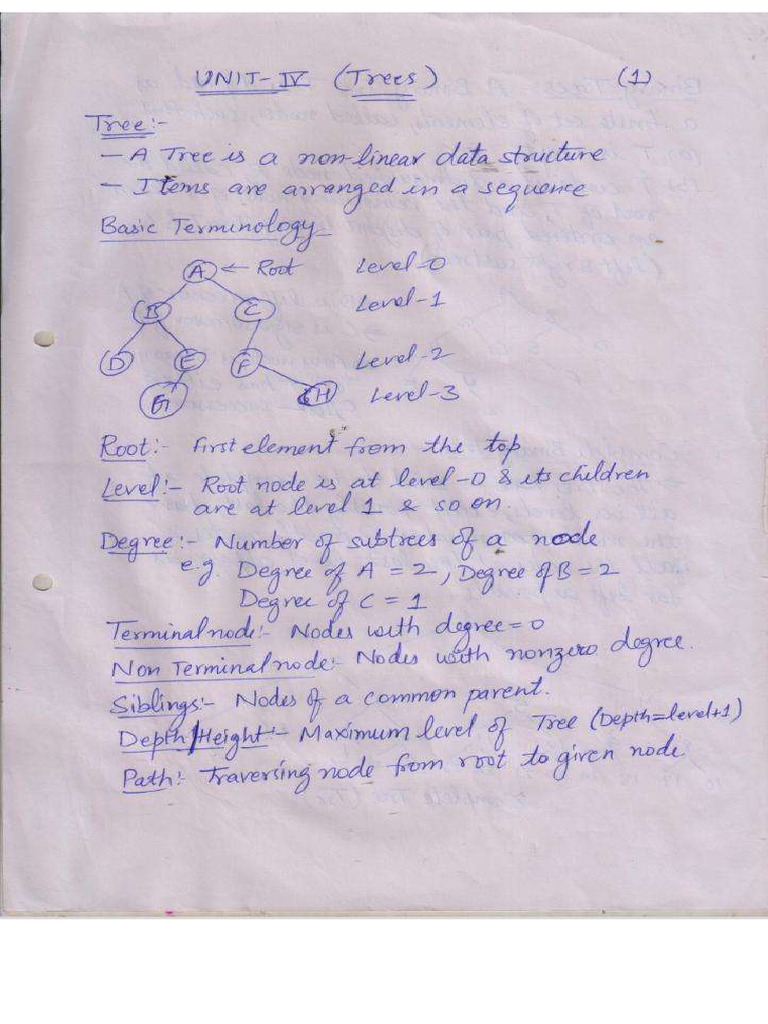 UNIT-IV (Trees) (1)
Tree:-
- A Tree is a non-linear data structure
- Items are arranged in a sequence
Basic Terminology
A ← Root Level-0
B C Level-1
D E F Level-2
G H Level-3
Root:- First element from the top
Level:- Root node is at level-0 & its children
are at level 1 & so on
Degree:- Number of subtrees of a node
e.g. Degree of A = 2, Degree of B = 2
Degree of C = 1
Terminal node:- Nodes with degree=0
Non Terminal node:- Nodes with nonzero degree.
Siblings:- Nodes of a common parent.
Depth/Height:- Maximum level of Tree (Depth=level+1)
Path:- Traversing node from root to given node